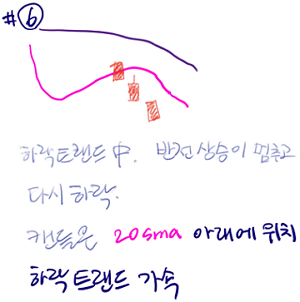 #⑥
하락트랜드 中. 반전상승이 멈추고
다시 하락.
캔들은 20sma 아래에 위치
하락 트랜드 가속